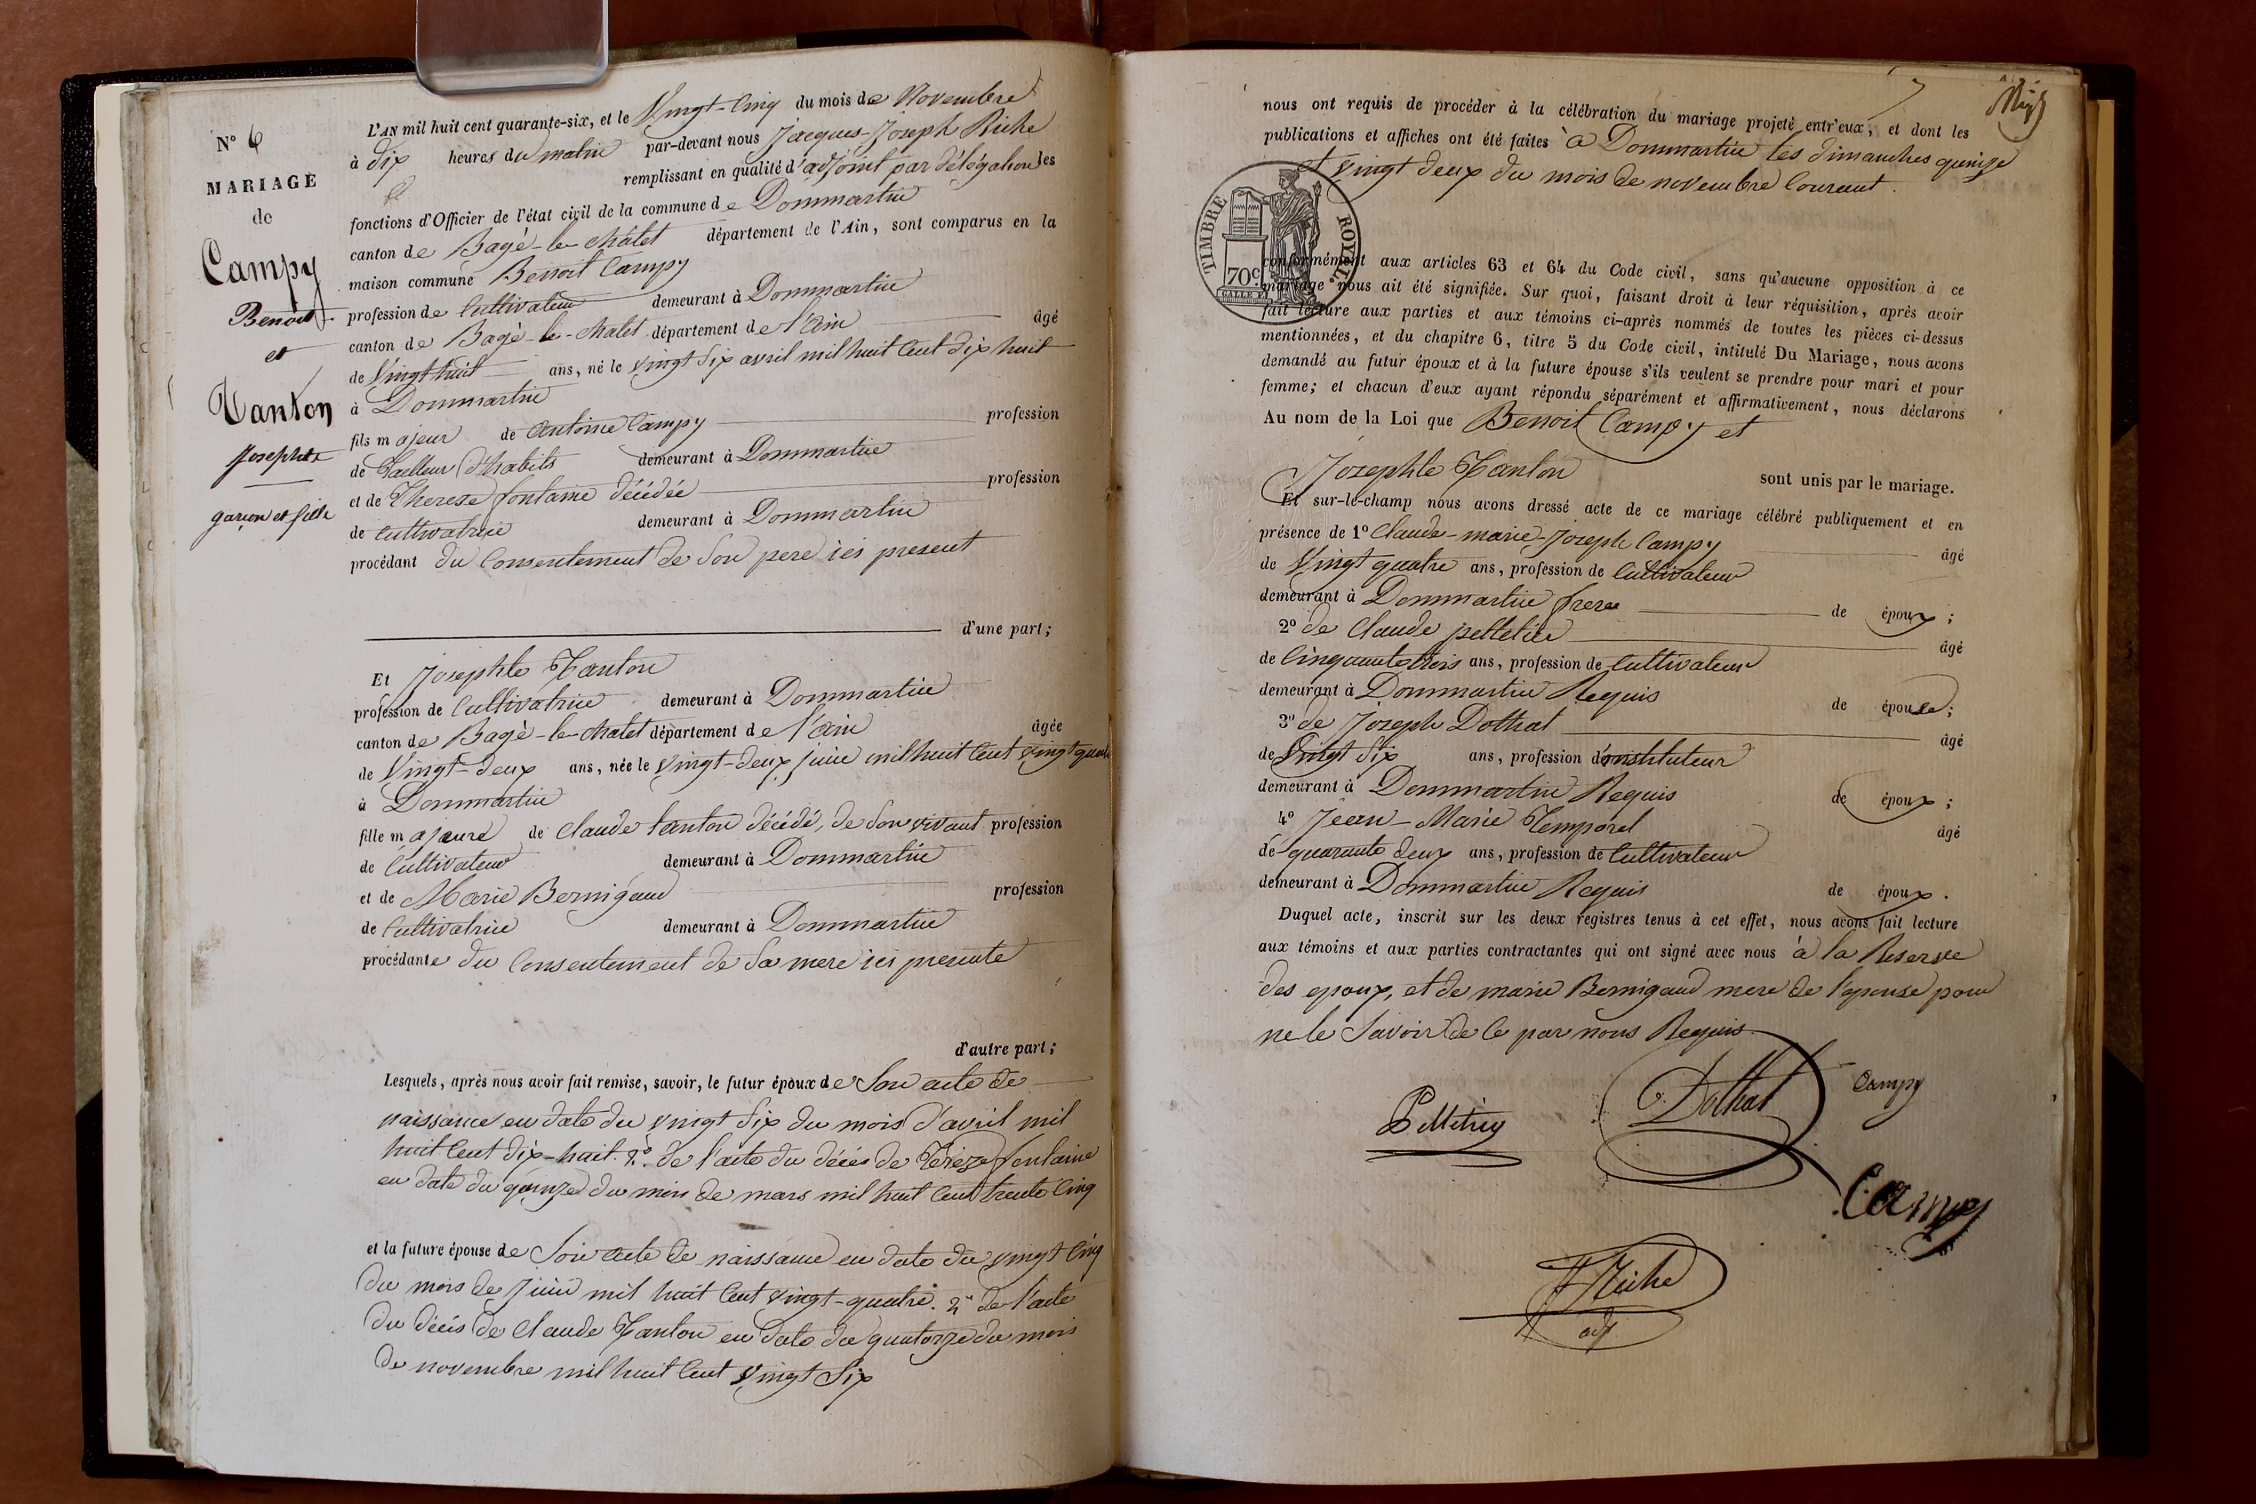 N° 6
MARIAGE
de
Campy
Benoit
et
Tanton
Josephte
garçon et fille
L'AN mil huit cent quarante-six, et le Vingt-Cinq du mois de Novembre
à dix heures du matin par-devant nous Jacques-Joseph Riche
remplissant en qualité d'adjoint par délégation les
fonctions d'Officier de l'état civil de la commune de Dommartin
canton de Bagé-le-châtel département de l'Ain, sont comparus en la
maison commune Benoit Campy
profession de Cultivateur demeurant à Dommartin
canton de Bagé-le-chatel département de l'ain âgé
de Vingt huit ans, né le vingt six avril mil huit Cent dix huit
à Dommartin
fils majeur de antoine Campy profession
de Tailleur d'habits demeurant à Dommartin
et de Therese fontaine décédée profession
de Cultivatrice demeurant à Dommartin
procédant du Consentement de Son pere ici present
d'une part;
Et Josephte Tanton
profession de Cultivatrice demeurant à Dommartin
canton de Bagé-le-chatel département de l'ain âgée
de Vingt-deux ans, née le vingt-deux juin mil huit Cent vingt quatre
à Dommartin
fille majeure de Claude tanton décédé, de Son vivant profession
de Cultivateur demeurant à Dommartin
et de Marie Bernigaud profession
de Cultivatrice demeurant à Dommartin
procédante du Consentement de Sa mere ici presente
d'autre part;
Lesquels, après nous avoir fait remise, savoir, le futur époux de Son acte de
naissance en date du vingt Six du mois d'avril mil
huit Cent dix-huit. 2° de l'acte du décés de Tereze fontaine
en date du quinze du mois de mars mil huit Cent trente Cinq
et la future épouse de Son acte de naissance en date du vingt Cinq
du mois de juin mil huit Cent vingt-quatre. 2° de l'acte
du décés de Claude Tanton en date du quatorze du mois
de novembre mil huit Cent vingt Six
nous ont requis de procéder à la célébration du mariage projeté entr'eux, et dont les
publications et affiches ont été faites à Dommartin les dimanches quinze
et vingt deux du mois de novembre Courant.
TIMBRE ROYAL.
70c.
conformément aux articles 63 et 64 du Code civil, sans qu'aucune opposition à ce
mariage nous ait été signifiée. Sur quoi, faisant droit à leur réquisition, après avoir
fait lecture aux parties et aux témoins ci-après nommés de toutes les pièces ci-dessus
mentionnées, et du chapitre 6, titre 5 du Code civil, intitulé Du Mariage, nous avons
demandé au futur époux et à la future épouse s'ils veulent se prendre pour mari et pour
femme; et chacun d'eux ayant répondu séparément et affirmativement, nous déclarons
Au nom de la Loi que Benoit Campy et
Josephte Tanton sont unis par le mariage.
Et sur-le-champ nous avons dressé acte de ce mariage célébré publiquement et en
présence de 1° Claude-marie-Joseph Campy âgé
de Vingt quatre ans, profession de Cultivateur
demeurant à Dommartin frere de époux;
2° de Claude pelletier âgé
de Cinquante trois ans, profession de Cultivateur
demeurant à Dommartin Requis de épouse;
3° de Joseph Dothat âgé
de Vingt Six ans, profession d'institituteur
demeurant à Dommartin Requis de époux;
4° Jean-Marie Temporal âgé
de quarante deux ans, profession de Cultivateur
demeurant à Dommartin Requis de époux.
Duquel acte, inscrit sur les deux registres tenus à cet effet, nous avons fait lecture
aux témoins et aux parties contractantes qui ont signé avec nous à la Reserve
des epoux, et de marie Bernigaud mere de l'epouse pour
ne le Savoir de ce par nous Requis.
Campy
Dothat
Campy
Riche
adj